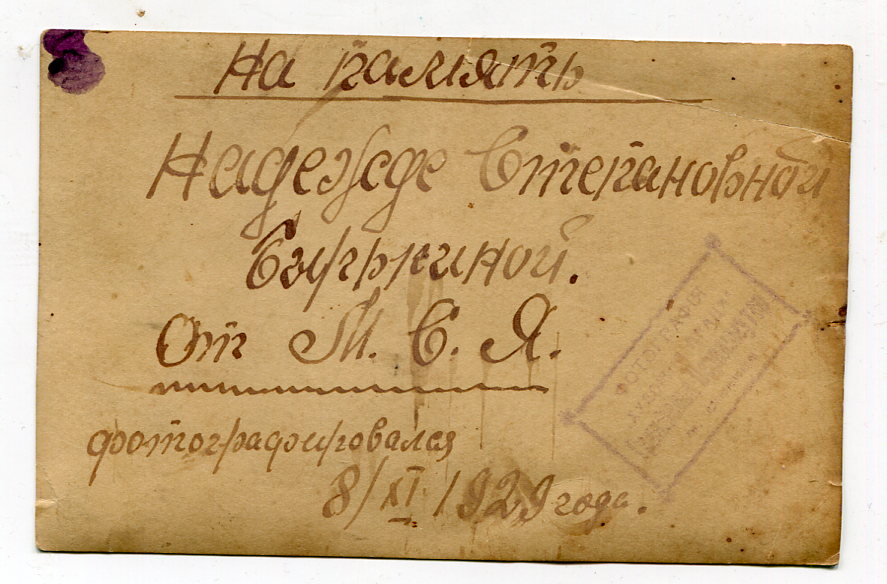 На память
Надежде Степановной
От М. С. Я.
фотографировался
8/XI 1929 года.
ФОТОГРАФИЯ